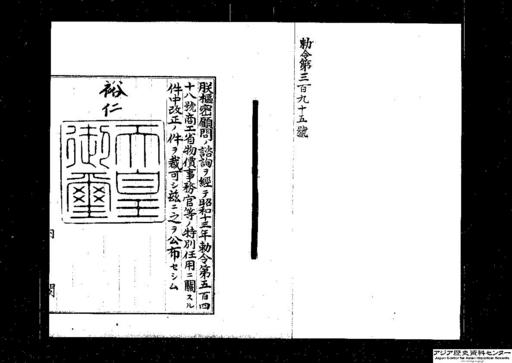 勅令第三百九十五號
朕樞密顧問ノ諮詢ヲ經テ昭和十三年勅令第五百四
十八號商工省物價事務官等ノ特別任用ニ關スル
件中改正ノ件ヲ裁可シ玆ニ之ヲ公布セシム
裕仁
天皇
御璽
内閣
アジア歴史資料センター
Japan Center for Asian Historical Records